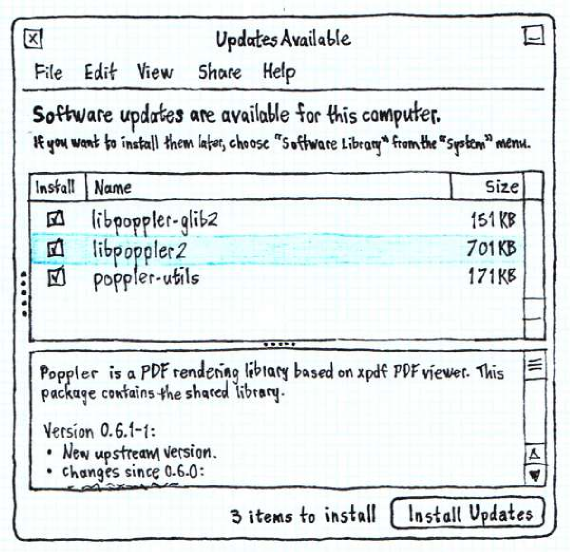 Updates Available
File Edit View Share Help
Software updates are available for this computer.
If you want to install them later, choose "Software Library" from the "System" menu.
Install Name Size
libpoppler-glib2 151 KB
libpoppler2 701 KB
poppler-utils 171 KB
Poppler is a PDF rendering library based on xpdf PDF viewer. This
package contains the shared library.
Version 0.6.1-1:
• New upstream version.
• Changes since 0.6.0:
3 items to install Install Updates